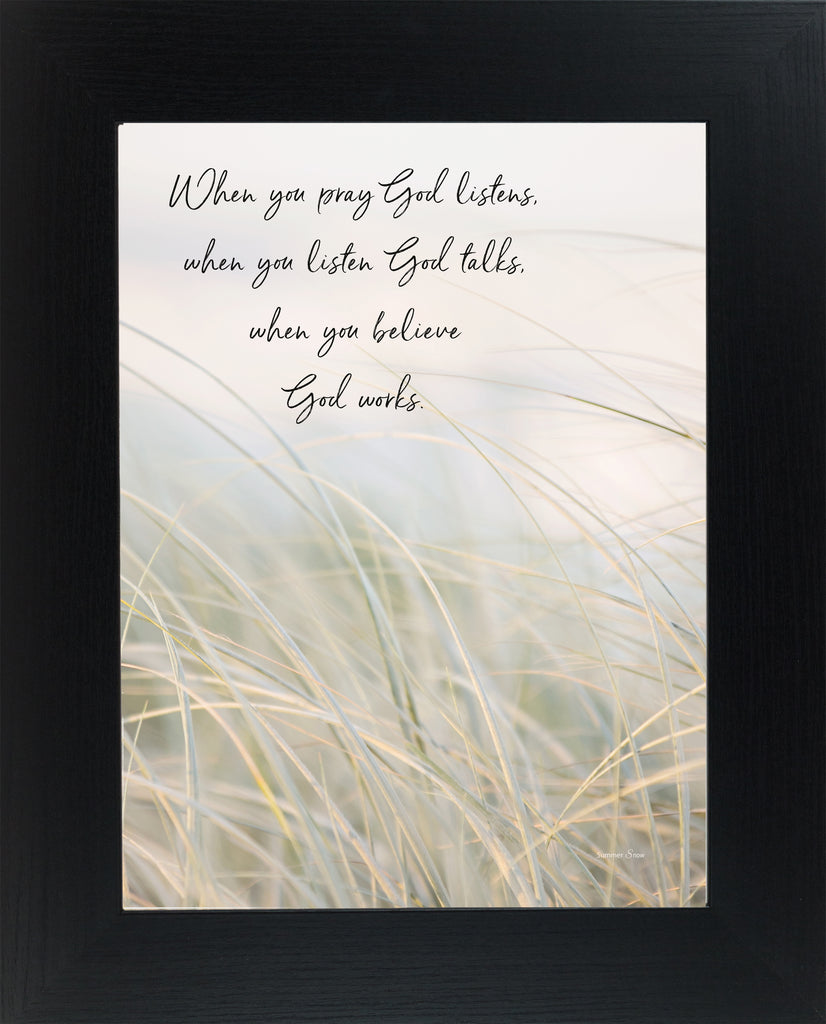 When you pray God listens,
when you listen God talks,
when you believe
God works.
Summer Snow